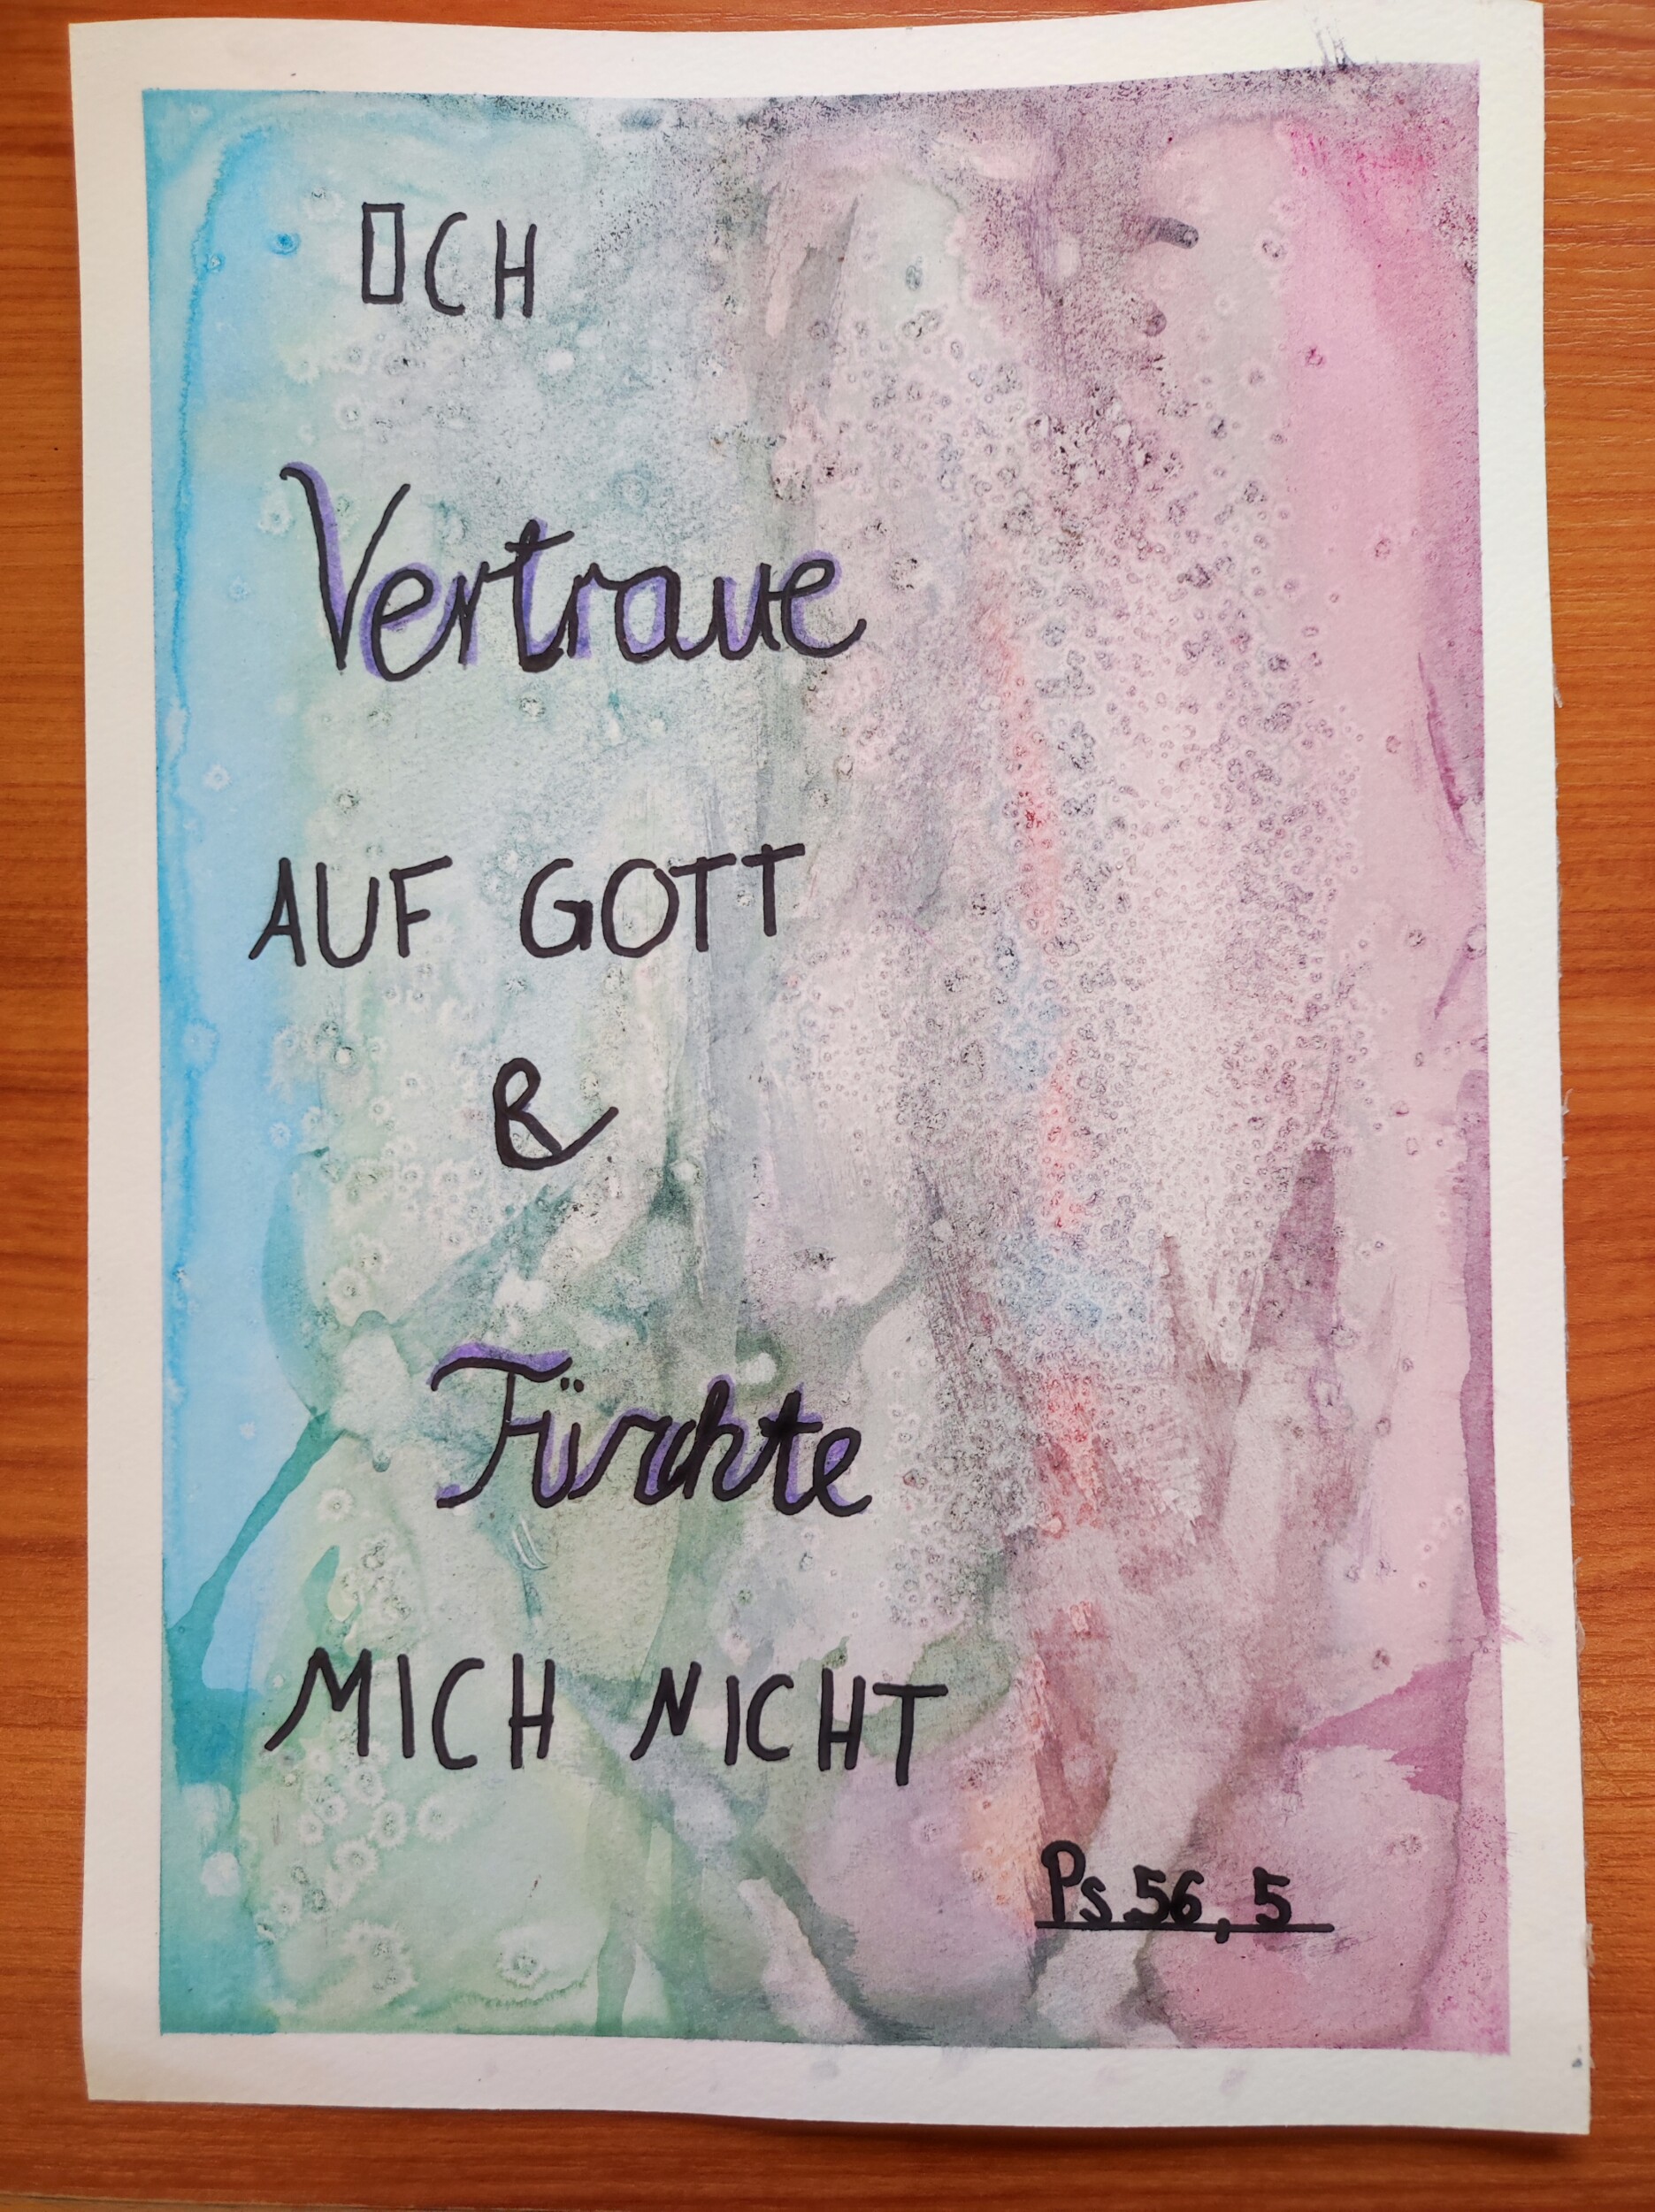 ICH
Vertraue
AUF GOTT
&
Fürchte
MICH NICHT
Ps 56, 5